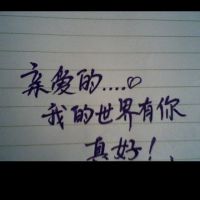 亲爱的....♡
我的世界有你
真好！